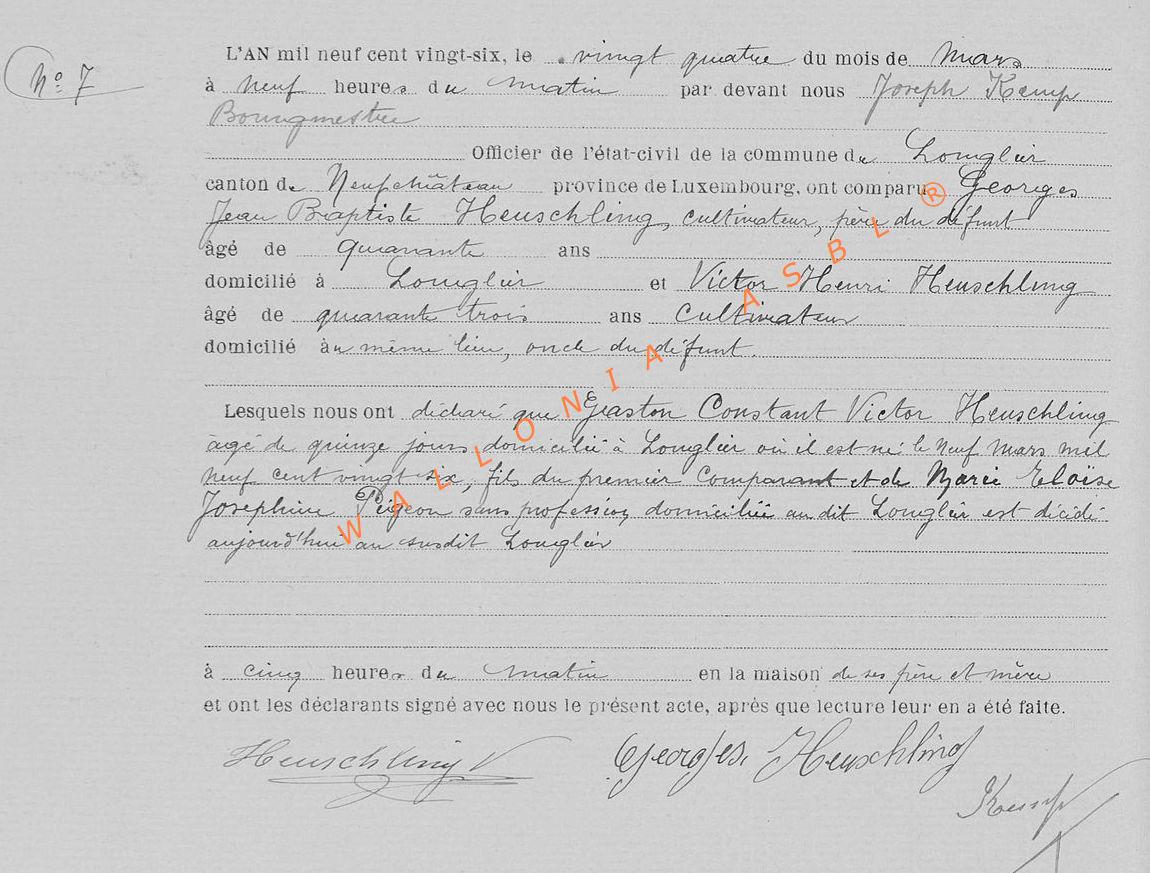 N° 7
L'AN mil neuf cent vingt-six, le vingt quatre du mois de Mars
à neuf heures du matin par devant nous Joseph Kemp
Bourgmestre
Officier de l'état-civil de la commune de Longlier
canton de Neufchâteau province de Luxembourg, ont comparu Georges
Jean Baptiste Heuschling, cultivateur, père du défunt
âgé de quarante ans
domicilié à Longlier et Victor Henri Heuschling
âgé de quarante trois ans cultivateur
domicilié au même lieu, oncle du défunt.
Lesquels nous ont déclaré que Gaston Constant Victor Heuschling
âgé de quinze jours domicilié à Longlier où il est né le neuf mars mil
neuf cent vingt six, fils du premier comparant et de Marie Eloïse
Joséphine Pigeon sans profession, domiciliée au dit Longlier est décédé
aujourd'hui au susdit Longlier
à cinq heures du matin en la maison de ses père et mère
et ont les déclarants signé avec nous le présent acte, après que lecture leur en a été faite.
Heuschling V Georges Heuschling
Kemp
WALLONIA ASBL ®